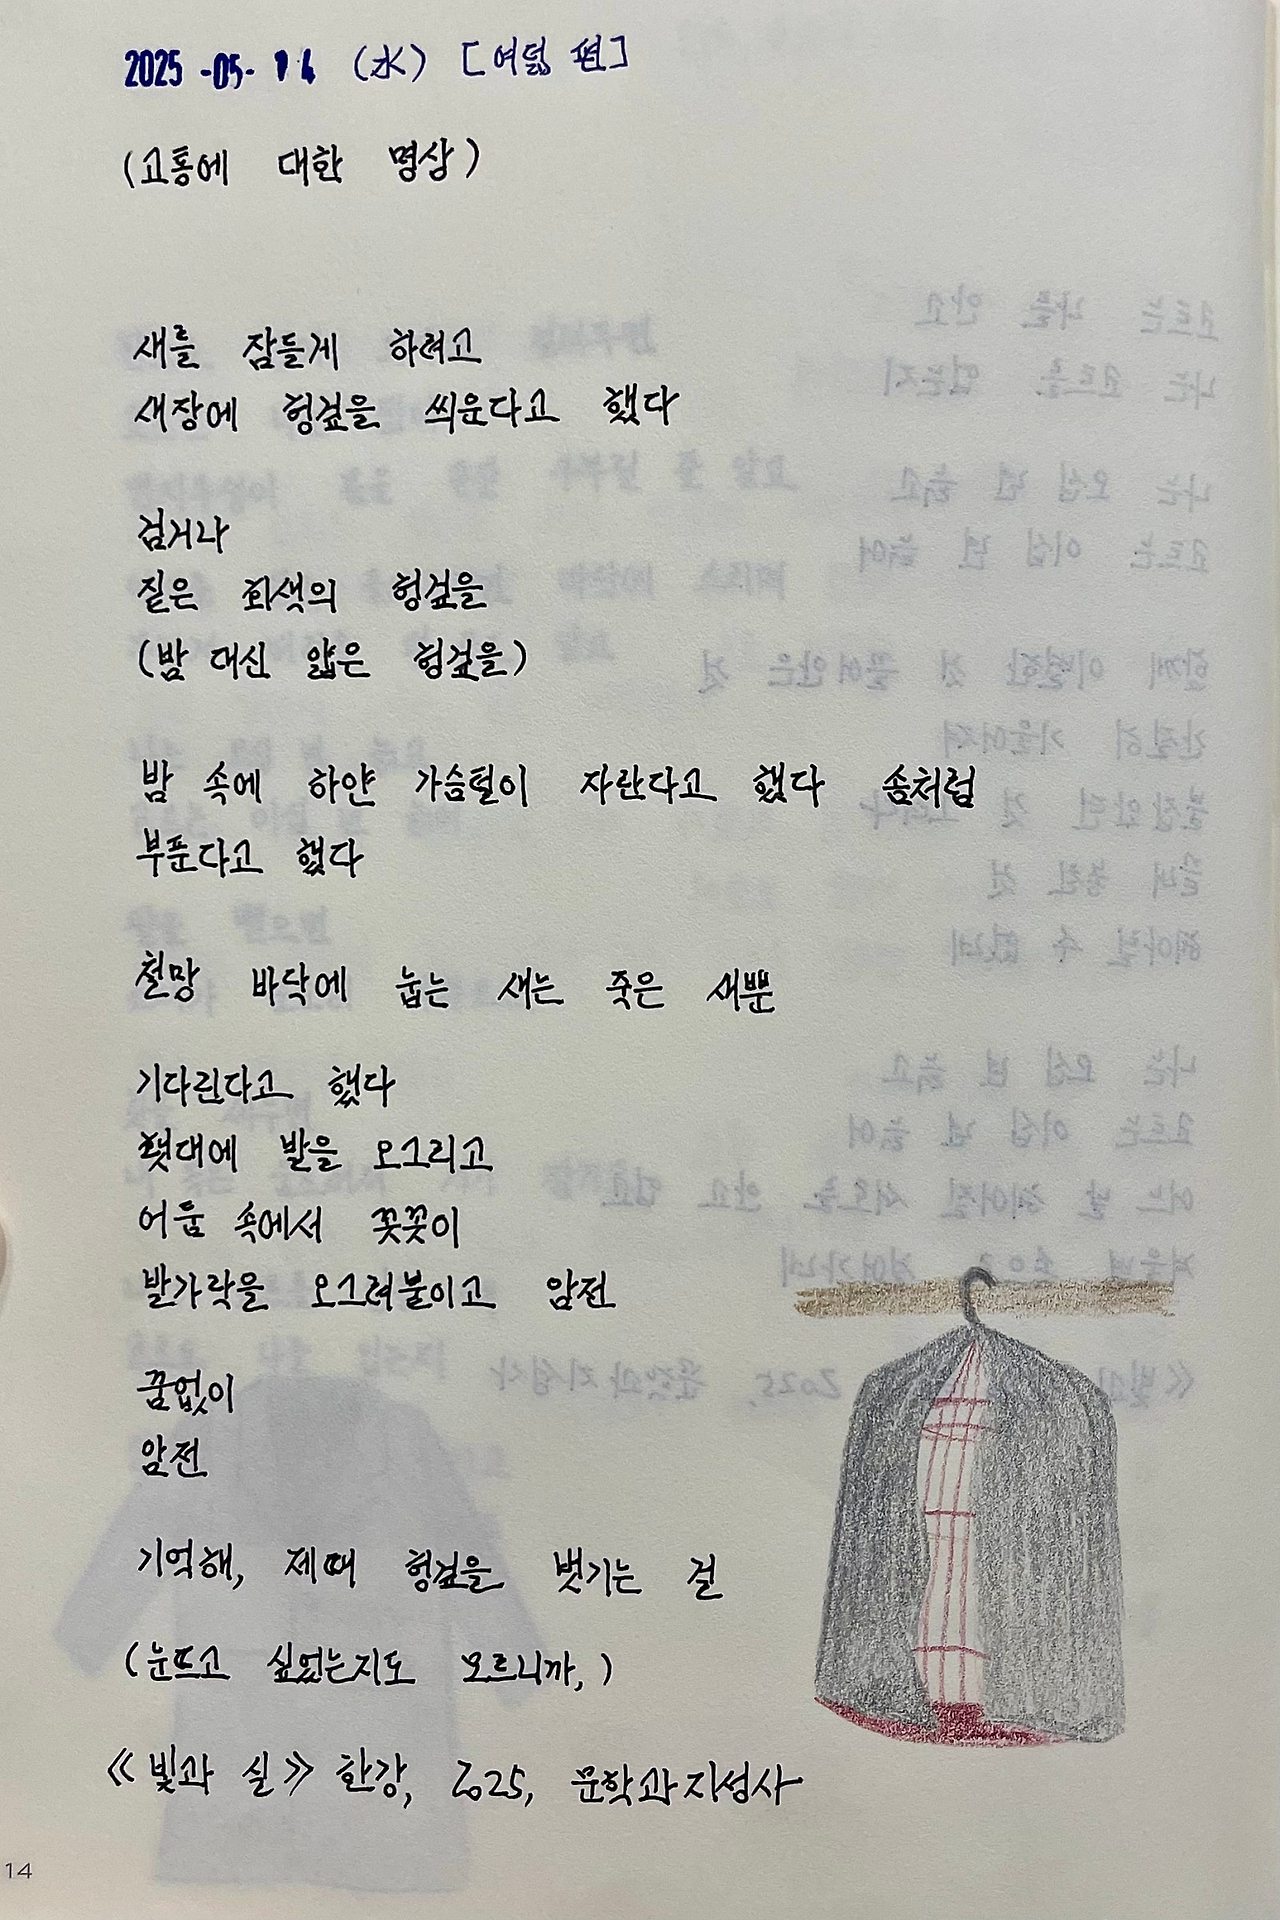 2025-05-14 (水) [여덟 편]
(고통에 대한 명상)
새를 잠들게 하려고
새장에 헝겊을 씌운다고 했다
검거나
짙은 회색의 헝겊을
(밤 대신 얇은 헝겊을)
밤 속에 하얀 가슴털이 자란다고 했다 솜처럼
부푼다고 했다
철망 바닥에 눕는 새는 죽은 새뿐
기다린다고 했다
횃대에 발을 오그리고
어둠 속에서 꼿꼿이
발가락을 오그려붙이고 암전
꿈없이
암전
기억해, 제때 헝겊을 벗기는 걸
(눈뜨고 싶었는지도 모르니까,)
《빛과 실》 한강, 2025, 문학과지성사
14